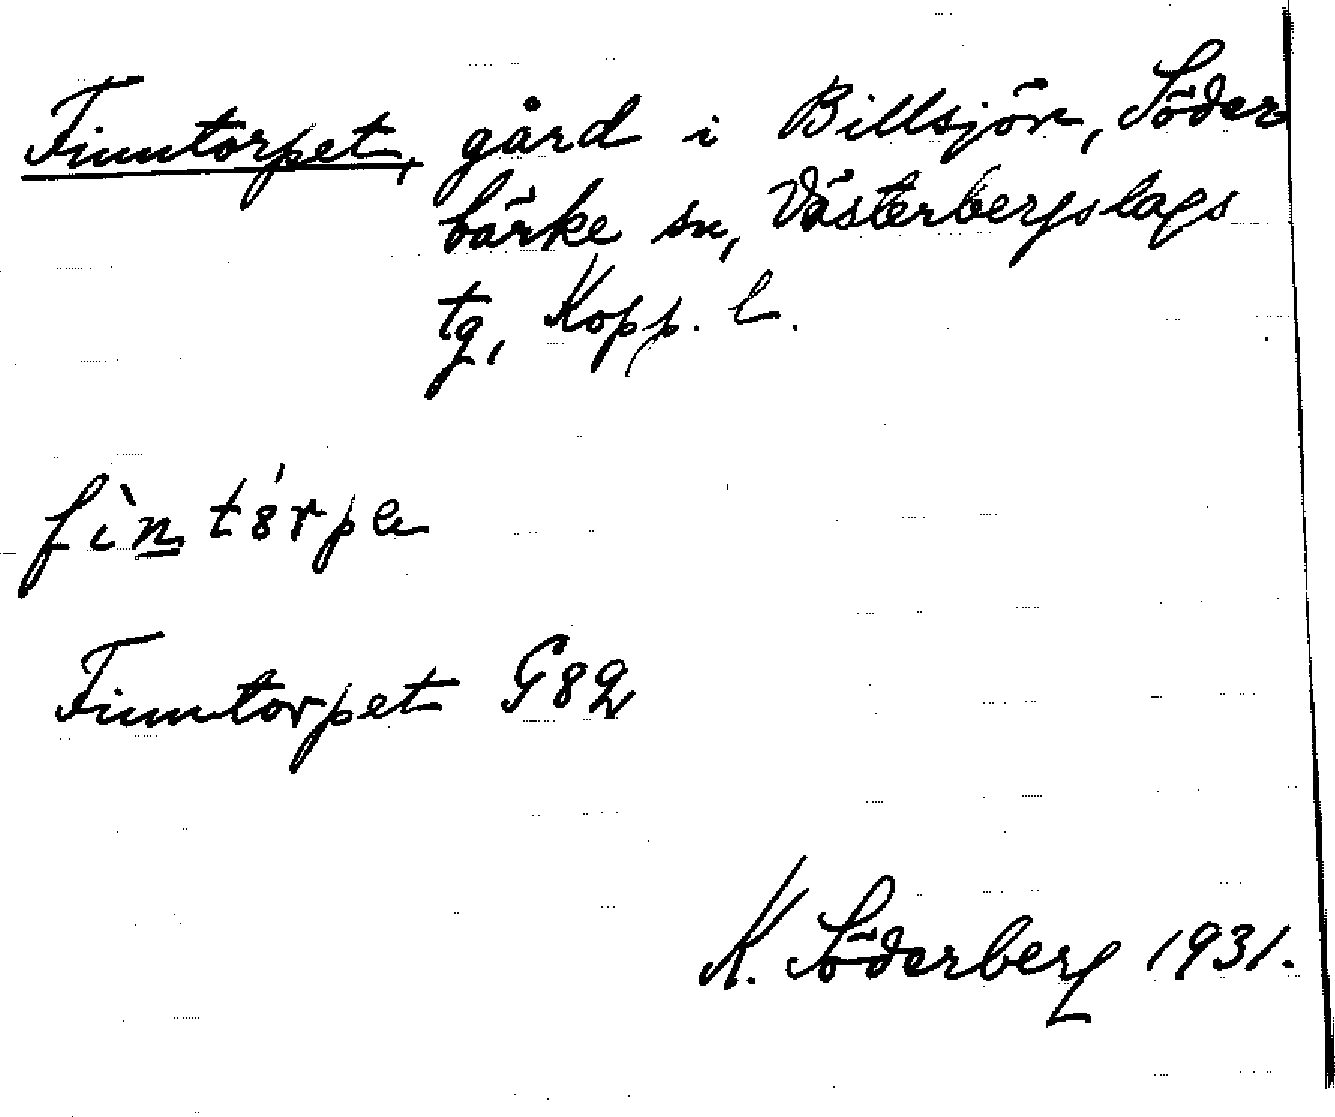 Finntorpet, gård i Billsjön, Söder
bärke sn, Västerbergslags
tg, Kopp. l.
fìntórpe
Finntorpet G82
K. Söderberg 1931.